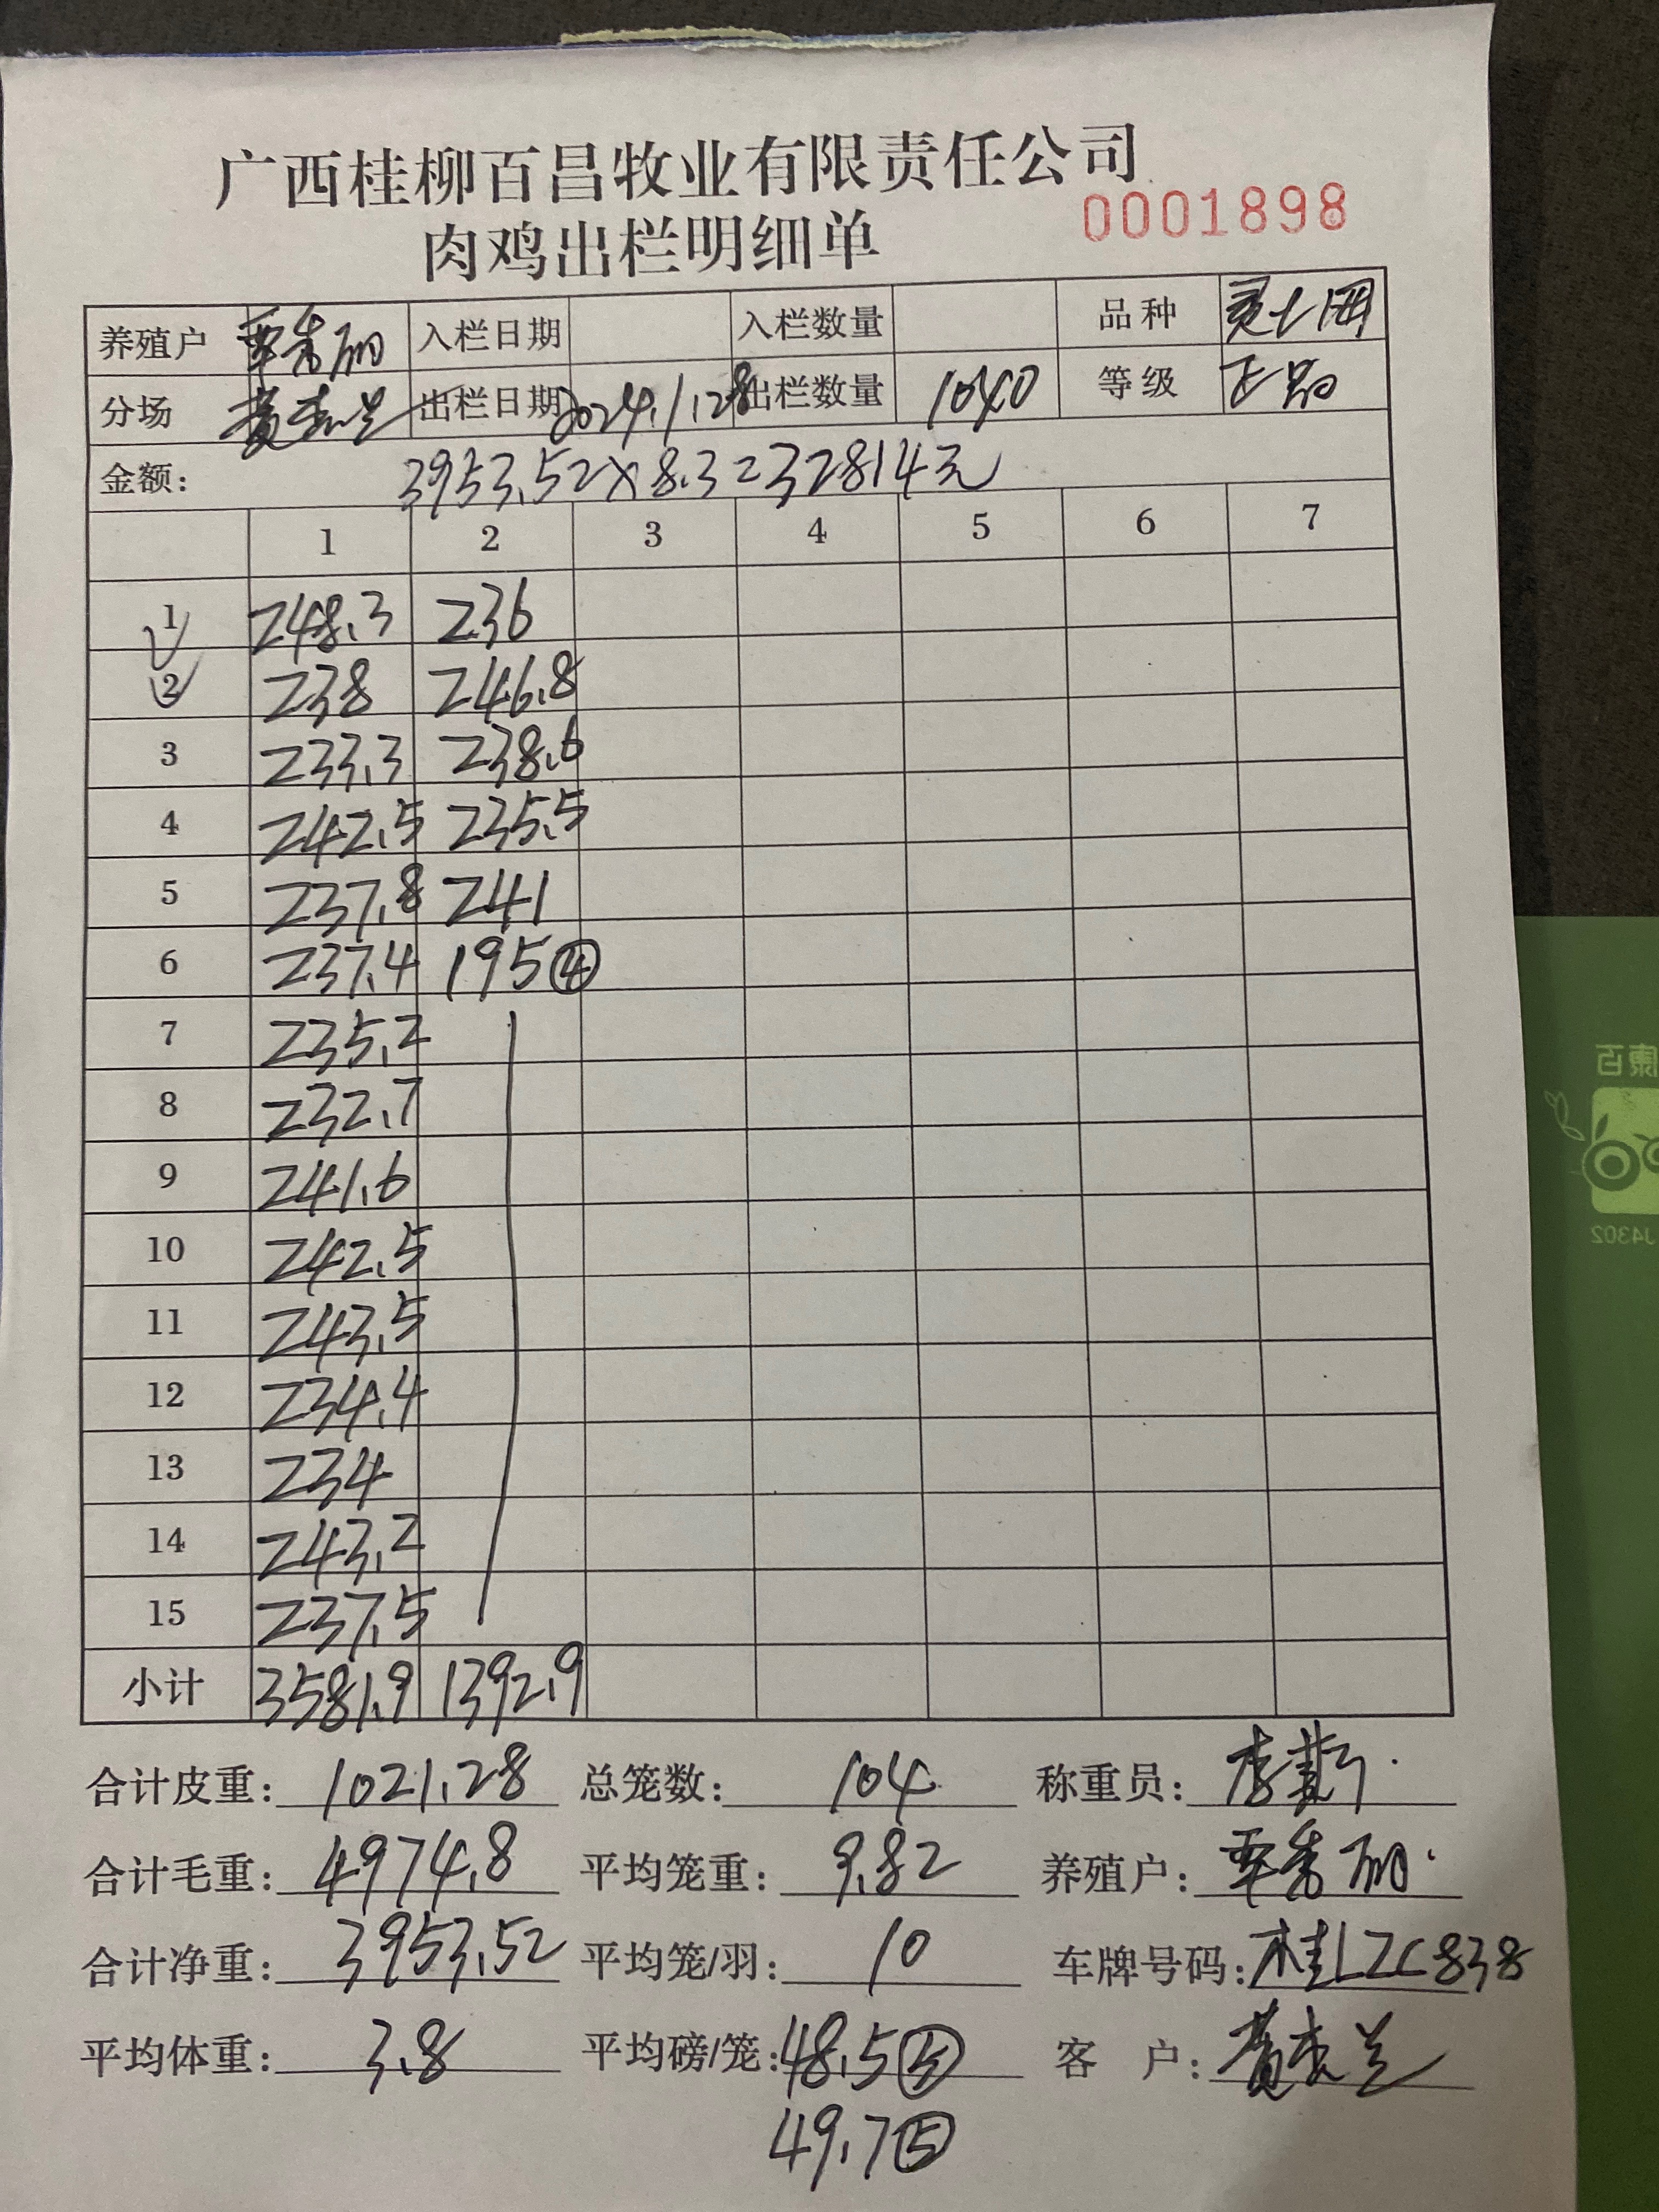 广西桂柳百昌牧业有限责任公司
肉鸡出栏明细单 0001898
养殖户 覃秀丽 入栏日期 入栏数量 品种
分场 出栏日期 2024.1.28 出栏数量 1040 等级 正品
金额: 3953.52×8.3=32814元
1 2 3 4 5 6 7
1 248.3 236
2 238 246.8
3 233.3 238.6
4 242.5 235.5
5 237.8 241
6 237.4 195④
7 235.2
8 232.7
9 241.6
10 242.5
11 243.5
12 234.4
13 234
14 243.2
15 237.5
小计 3581.9 1392.9
合计皮重: 1021.28 总笼数: 104 称重员:
合计毛重: 4974.8 平均笼重: 9.82 养殖户: 覃秀丽
合计净重: 3953.52 平均笼/羽: 10 车牌号码: 桂LZC838
平均体重: 3.8 平均磅/笼: 48.5⑤ 客户:
49.7⑤
百康
J4302